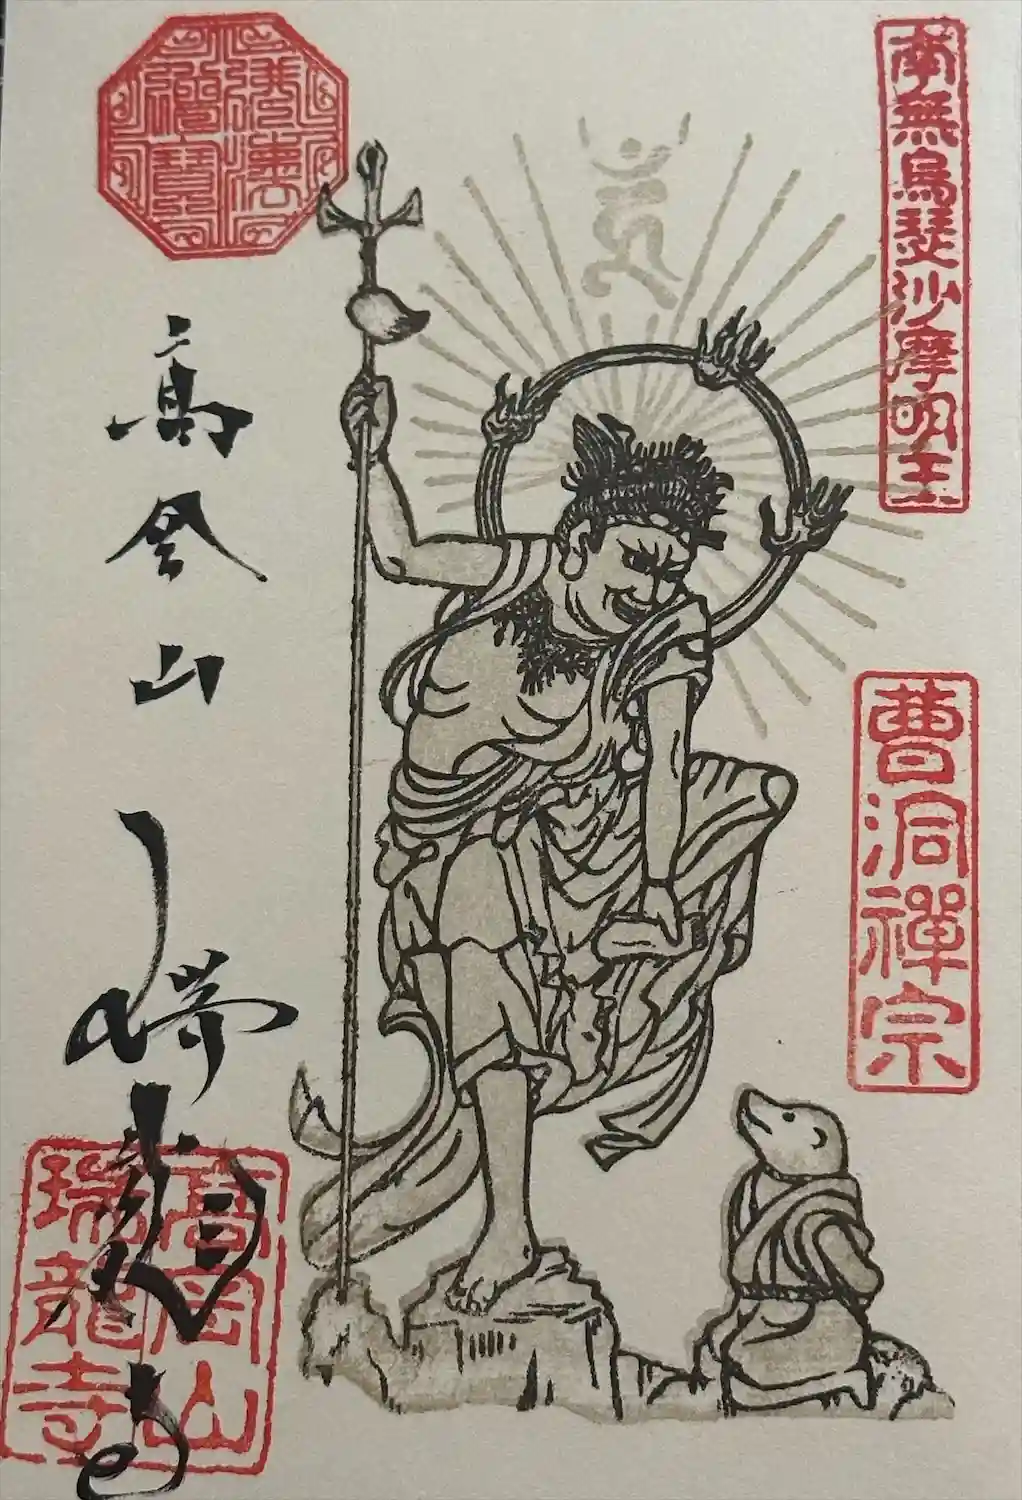 南無烏瑟沙摩明王
曹洞禪宗
佛法僧寶
高岡山
瑞龍寺
高岡山
瑞龍寺